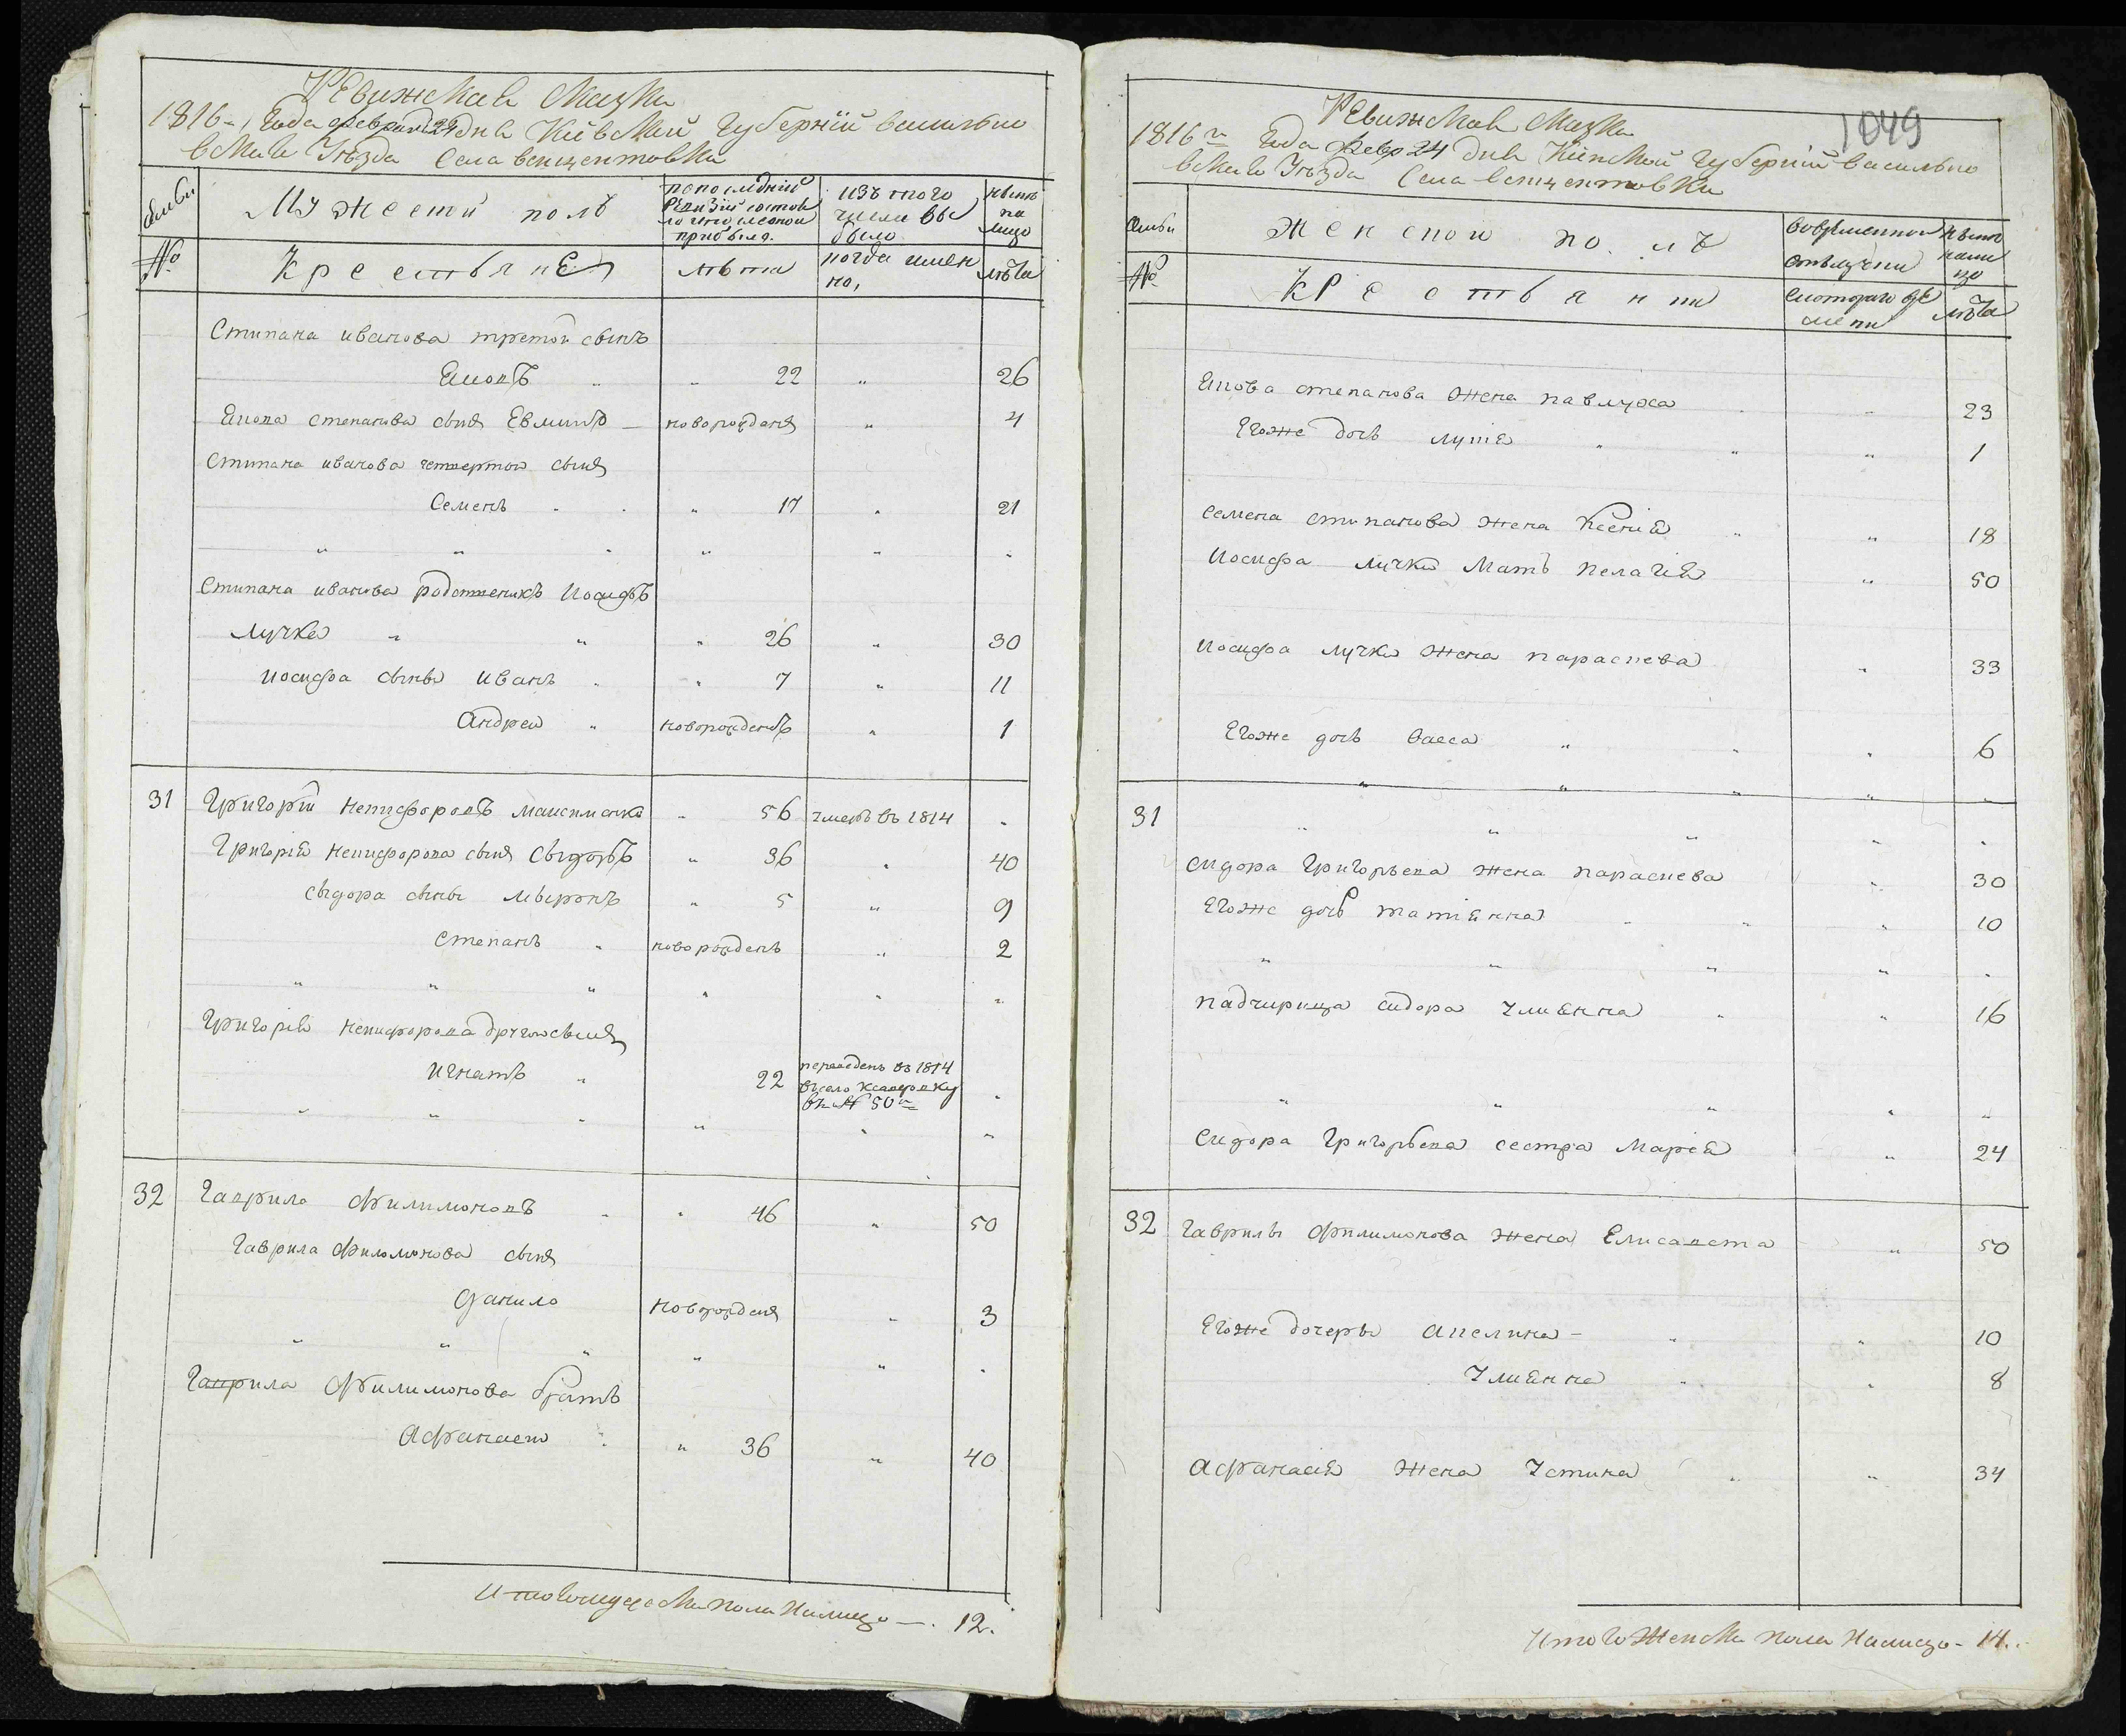 РЕвижская сказка
1816 Года февраля 24 дня Кіевской Губерніи василько
вскаго Уезда Села венцентовки
семьи
Мужеской полъ
попоследній ревизіи состоя
ло ипо
прибыло.
изъ того
числа вы
было
ныне
на
лицо
№
КрестьянЕ
лета
когда имен
но,
лета
Стипана иванова третой сынъ
Яковъ " " 22 " 26
Якова степанова сынъ Евмині — новорожденъ " 4
Стипана иванова четвертой сынъ
Семенъ " " 17 " 21
" " " " " "
Стипана иванова работникъ Иосифъ
Лучка " " " 26 " 30
иосифа сыны иванъ " " 7 " 11
Андрей " новорожденъ " 1
31 Григорій Никифоровъ максименко " 56 умеръ въ 1814 "
Григорія Никифорова сынъ Сыдоръ " 36 " 40
сыдора сыны Мыронъ " 5 " 9
степанъ " новорожденъ " 2
" " " " " "
Григорія Никифорова другой сынъ
Игнатъ " 22 переведенъ въ 1814
въ село ксаверовку
въ № 50й "
" " " " " "
32 Гаврило Филимоновъ " " 46 " 50
Гаврила Филимонова сынъ
Данило новорожденъ " 3
" " " " " "
Гаврила Филимонова братъ
Афанасей " " 36 " 40
Итого мужеска пола налицо — 12.
1049
РЕвижская сказка
1816го Года Февр 24 дня Кіевской Губерніи василько
вскаго Уезда Села венцентовки
семьи
Женской полъ
вовременной
отлучки
ныне
нали
цо
№
КРестьянки
с котораго вре
мени
лета
Якова степанова жена павлуха " " 23
Егоже дочь лукія " " " 1
семена стипанова жена ксенія " " 18
Иосифа лучки мать пелагія " 50
иосифа лучки жена параскева " 33
Егоже дочь васса " " " 6
" " " " "
31 " " " " "
сидора Григорьева жена параскева " 30
Егоже дочь татіянна " " " 10
" " " " "
падчирица сидора Улиянна " " 16
" " " " "
Сидора Григорьева сестра Марія " 24
32 Гаврилы Филимонова жена Елисавета " 50
Егоже дочеры акелина — " " 10
Улиянна " " 8
Афанасія жена Устина " " 34
Итого Женска пола Налицо - 14.